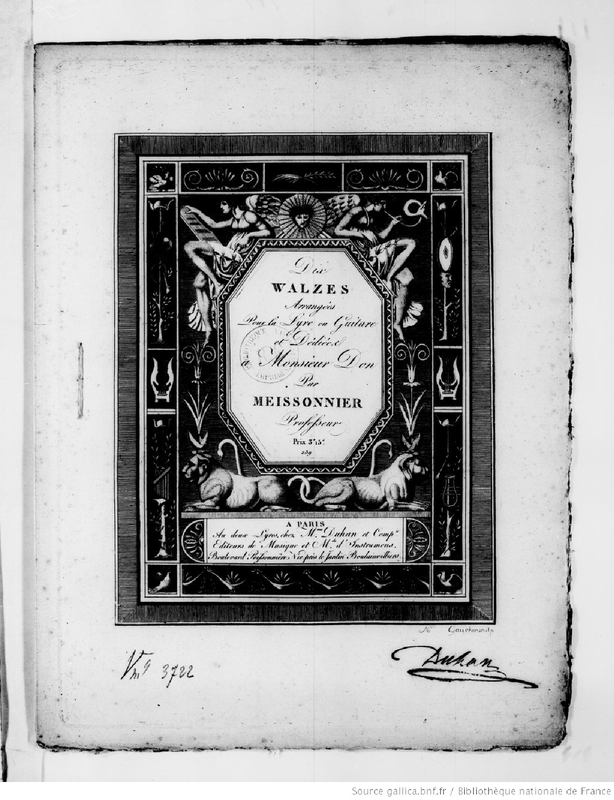 Dix
WALZES
Arrangées
Pour la Lyre ou Guitare
et Dédiées
à Monsieur Don
Par
MEISSONNIER
Professeur
Prix 3ᶠ 15ˢ
259
A PARIS
Au deux Lyres, chez Mᵐᵉ Duhan et Compᵉ
Editeurs de Musique et Mᵈˢ d'Instrumens,
Boulevard Poissonnière, N° 10 près le Jardin Boulainvilliers
Vmᵍ 3722
Duhan
Source gallica.bnf.fr / Bibliothèque nationale de France